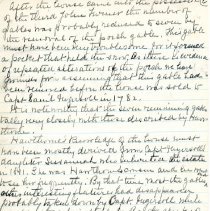 After the house came into the possession
of the third John Turner the number of
gables was probably reduced to seven by
the removal of the porch gable. This gable
must have been very troublesome for it formed
a pocket that held the snow. As there is evidence
of repeated alterations of the porch we have
grounds for assuming that this gable had
been removed before the house was sold to
Capt. Saml Ingersoll in 1782.
It is notable that the seven remaining gables
tally very closely with those described by Haw-
thorne.
Hawthorne's knowledge of the house must
have been mostly derived from Capt Ingersoll's
daughter Susannah who inherited the estate
in 1811. She was Hawthorne's cousin and
by that time most of the gables
and interesting features had disappeared
probably taken down by Capt Ingersoll while